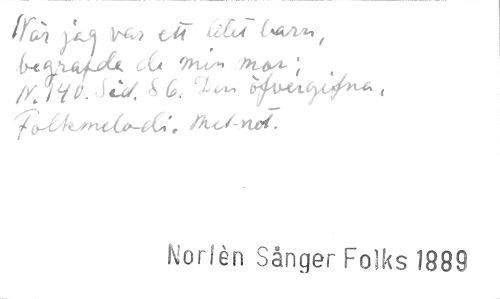 När jag var ett litet barn,
begrafde de min mor;
N. 140. Sid. 86. Den öfvergifna.
Folkmelodi. Med not.
Norlèn Sånger Folks 1889